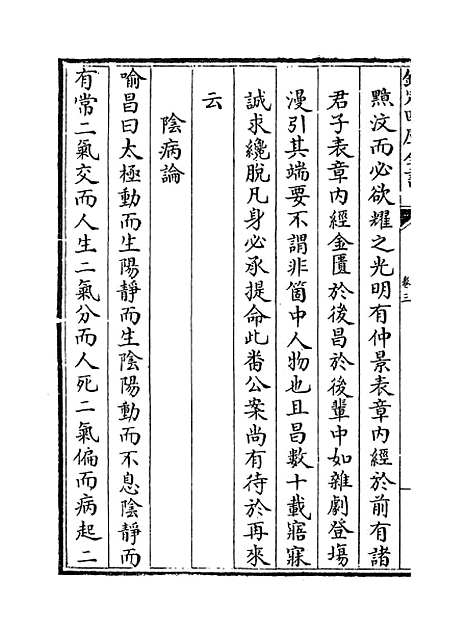 欽定四庫全書
卷三
黯汶而必欲耀之光明有仲景表章內經於前有諸
君子表章內經金匱於後昌於後輩中如雜劇登場
漫引其端要不謂非箇中人物也且昌數十載寤寐
誠求纔脫凡身必承提命此番公案尚有待於再來
云
陰病論
喻昌曰太極動而生陽靜而生陰陽動而不息陰靜而
有常二氣交而人生二氣分而人死二氣偏而病起二